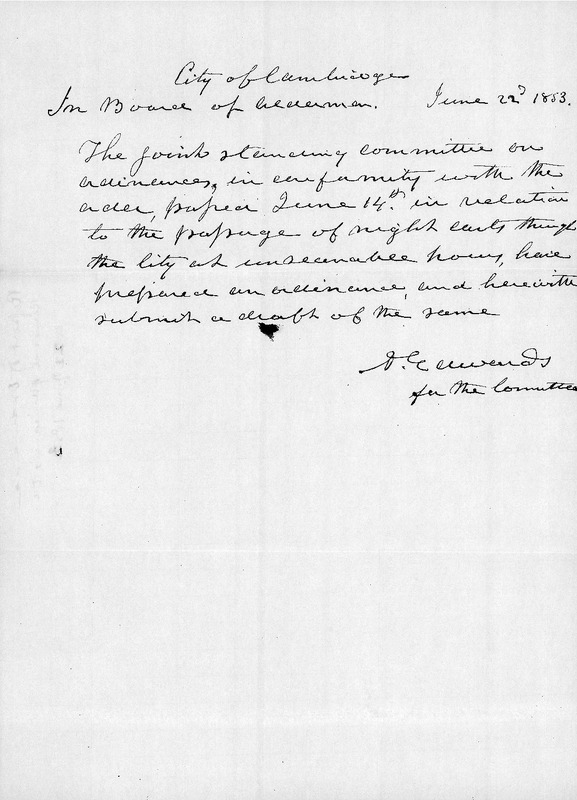 City of Cambridge
In Board of Aldermen. June 22d 1853.
The joint standing committee on
ordinances, in conformity with the
order, passed June 14th in relation
to the passage of night carts through
the city at unseasonable hours, have
prepared an ordinance, and herewith
submit a draft of the same
A. Edwards
for the Committee